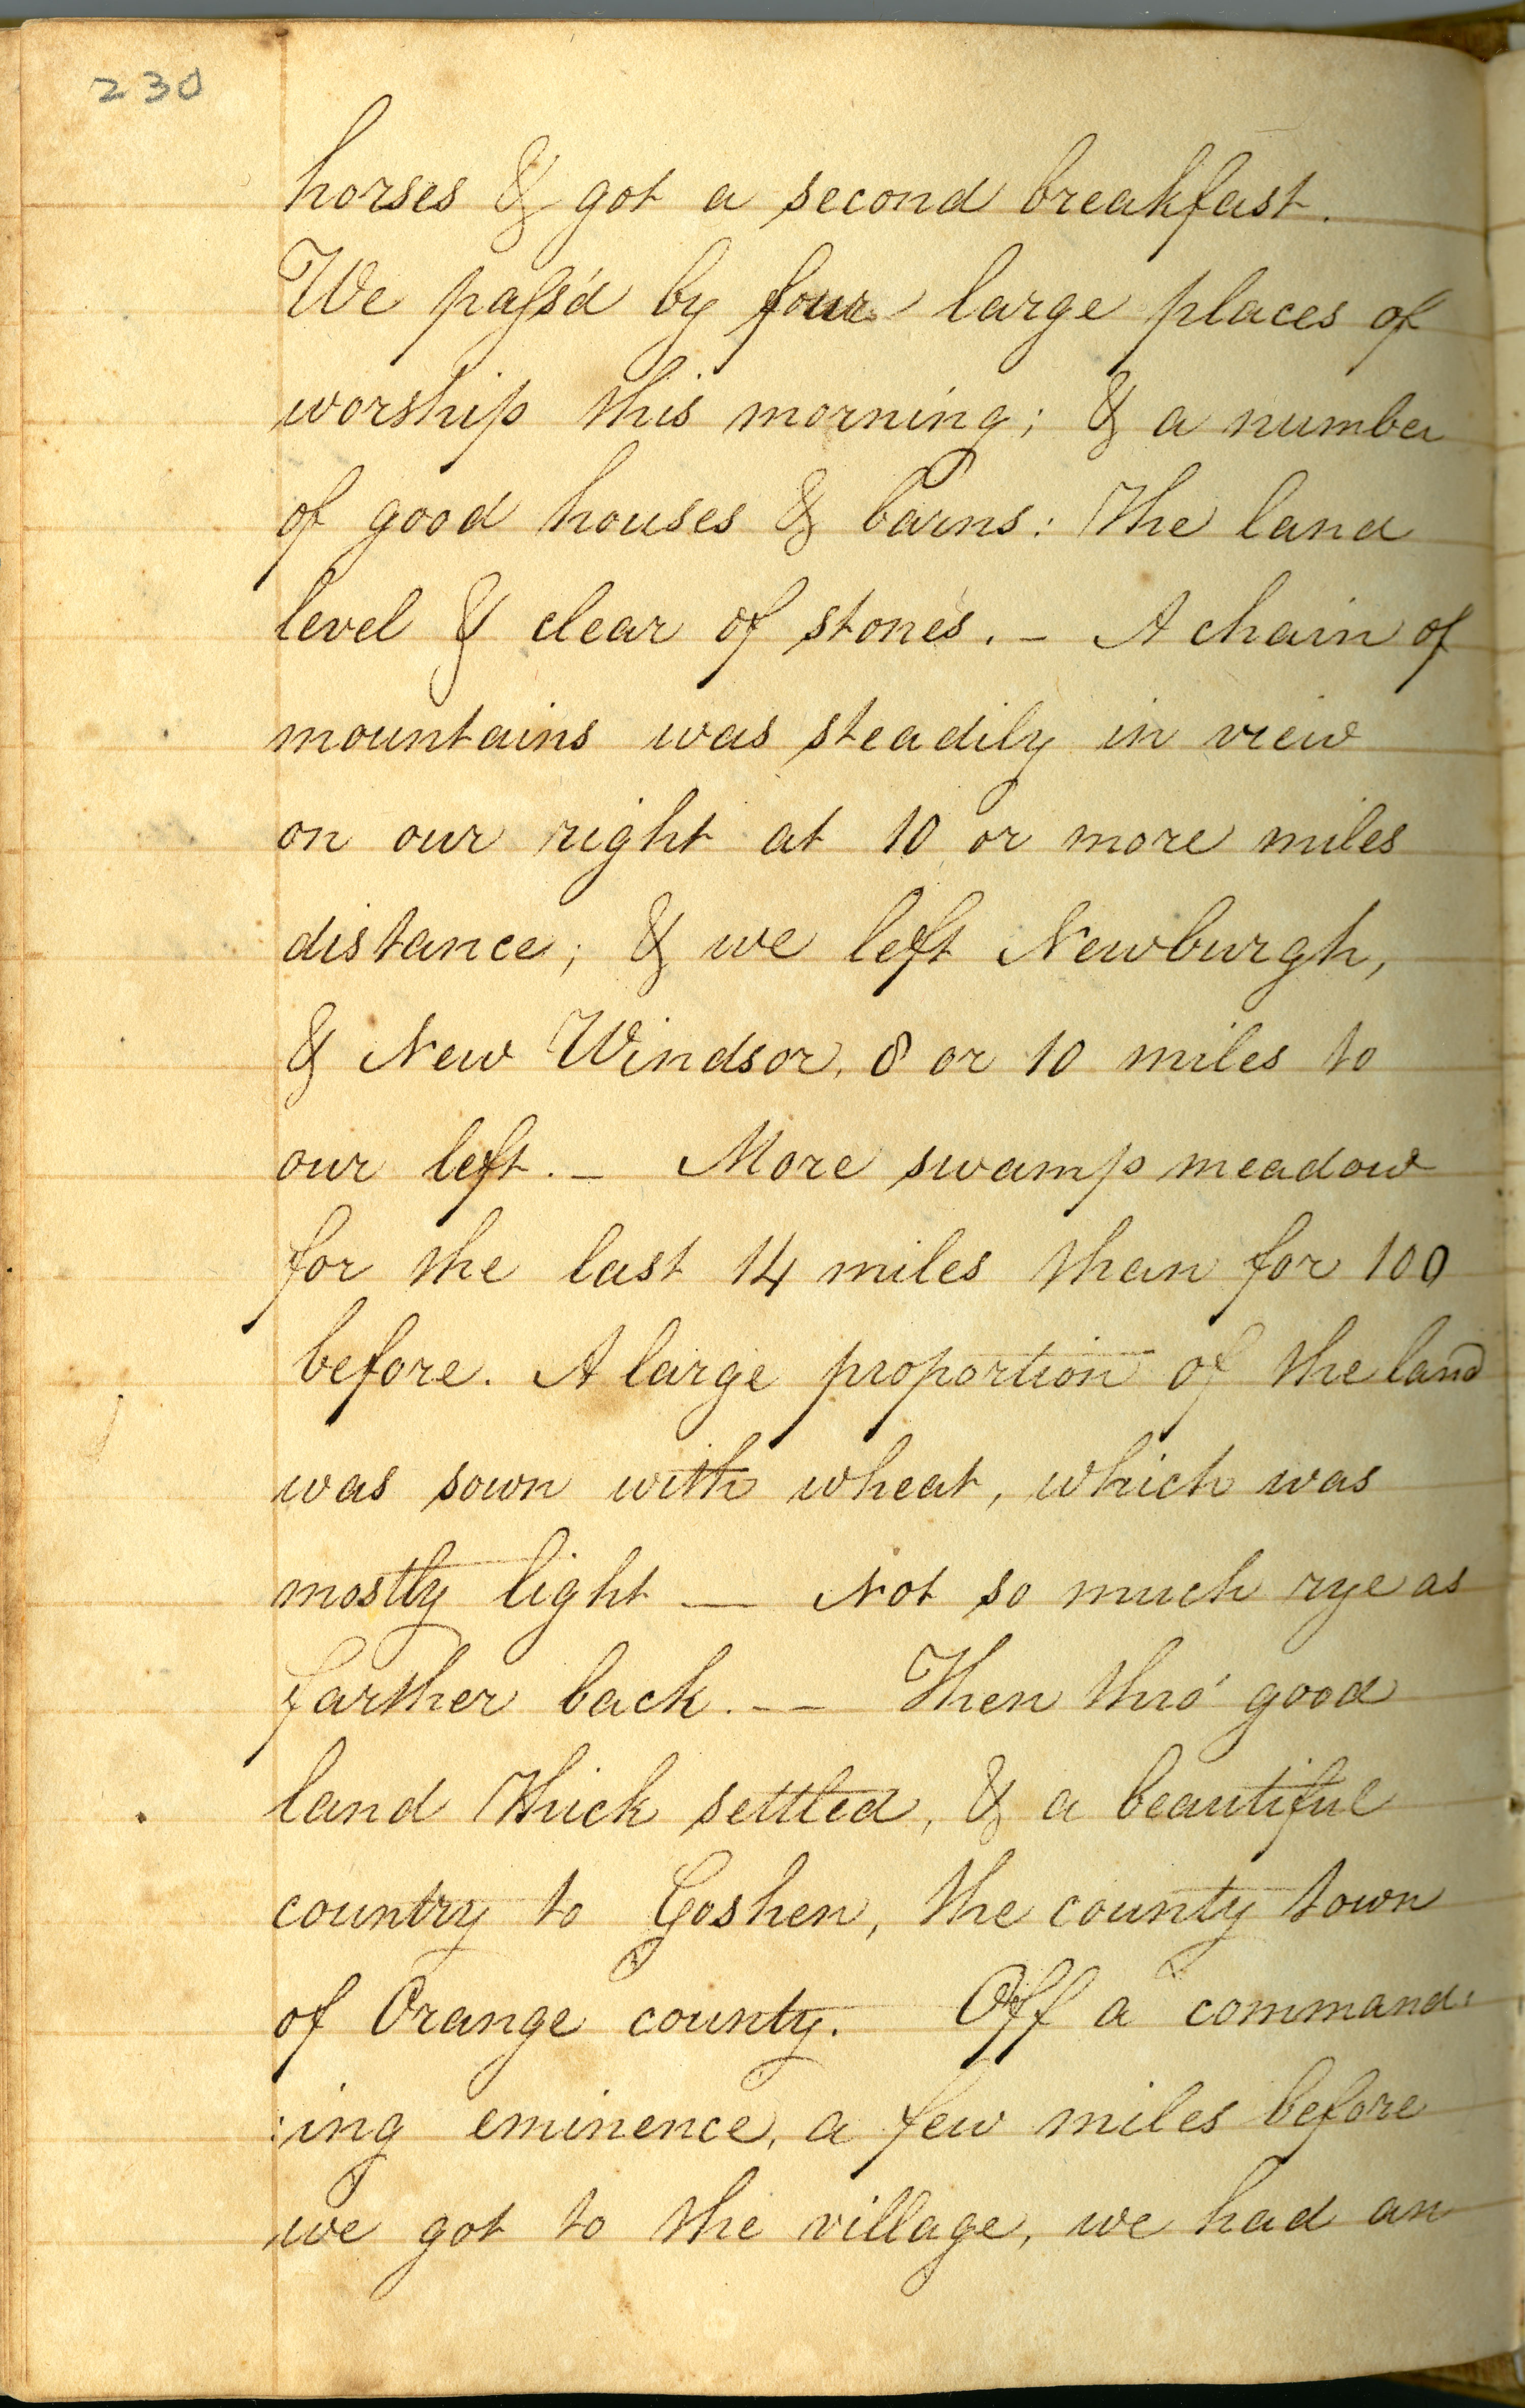 230
horses & got a second breakfast.
We paſs'd by four large places of
worship this morning; & a number
of good houses & barns: The land
level & clear of stones. – A chain of
mountains was steadily in view
on our right at 10 or more miles
distance; & we left Newburgh,
& New Windsor, 8 or 10 miles to
our left. – More swamp meadow
for the last 14 miles than for 100
before. A large proportion of the land
was sown with wheat, which was
mostly light — Not so much rye as
farther back. — Then thro' good
land thick settled, & a beautiful
country to Goshen, the county town
of Orange county. Off a command:
:ing eminence, a few miles before
we got to the village, we had an